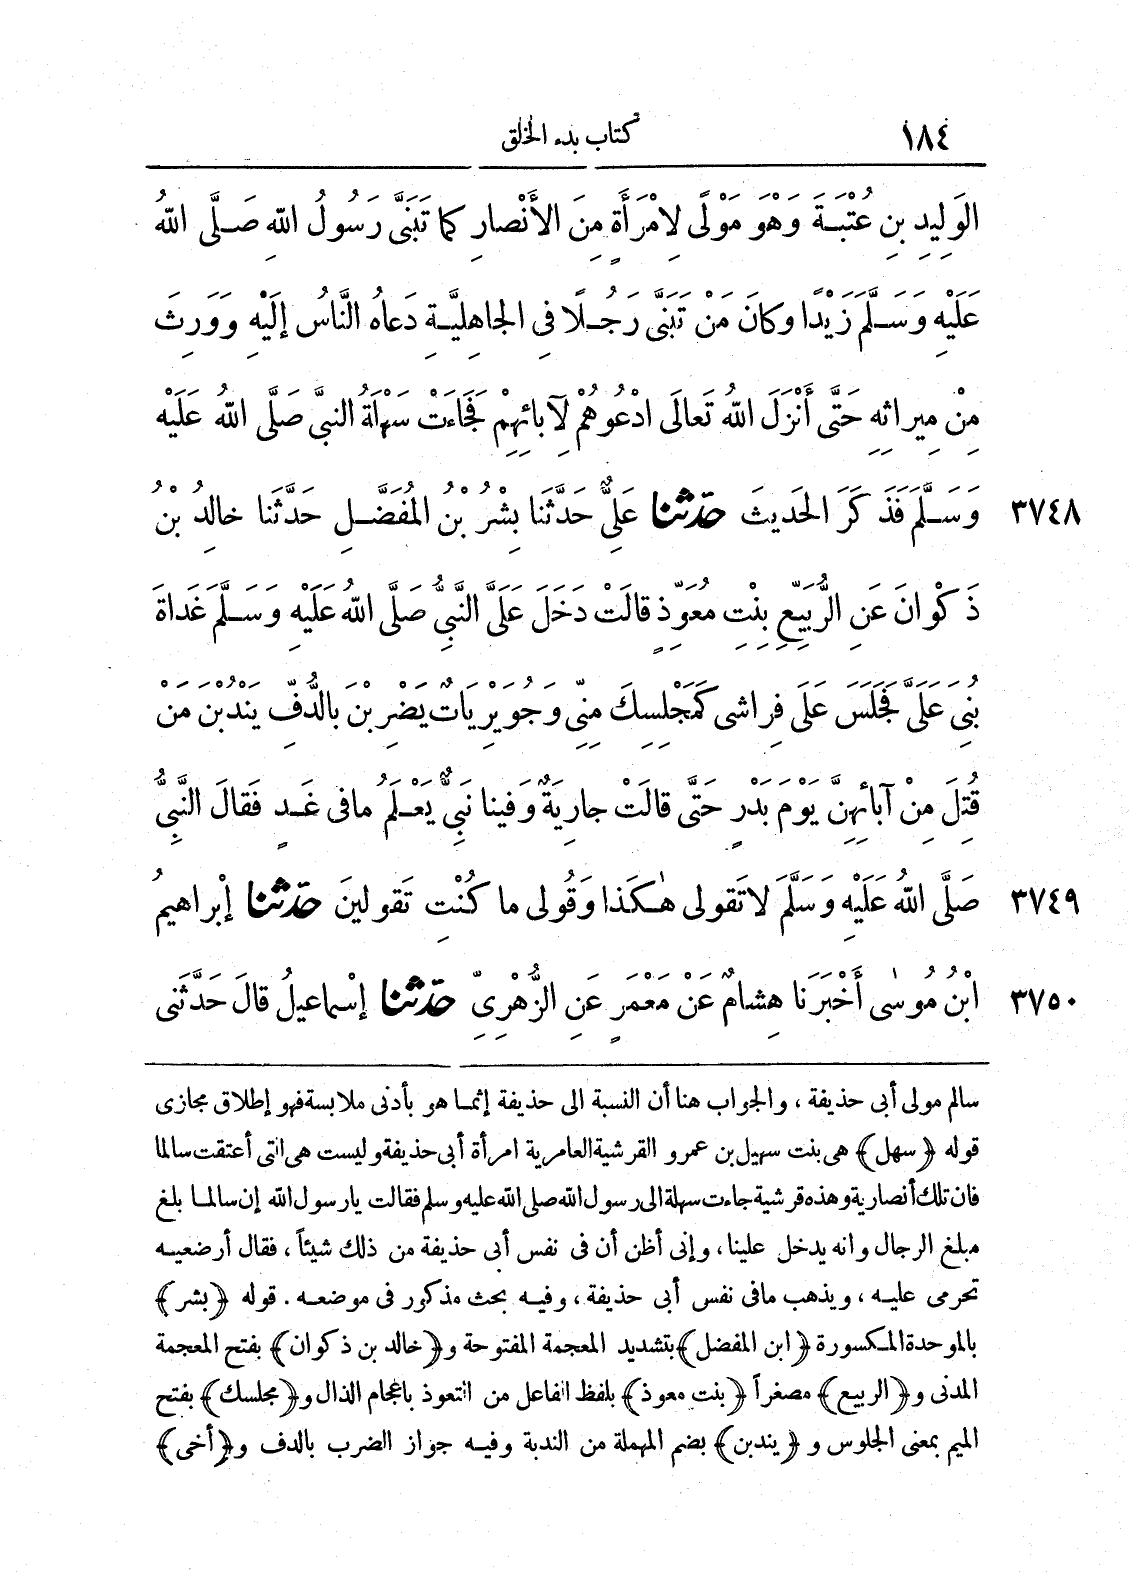 ١٨٤ كتاب بدء الخلق
الوَلِيدِ بنِ عُتْبَةَ وَهْوَ مَوْلًى لِامْرَأَةٍ مِنَ الأَنْصارِ كما تَبَنَّى رَسُولُ اللهِ صَلَّى اللهُ
عَلَيْهِ وَسَلَّمَ زَيْدًا وكانَ مَنْ تَبَنَّى رَجُلًا فِى الجاهِلِيَّةِ دَعاهُ النَّاسُ إلَيْهِ وَوَرِثَ
مِنْ مِيراثِهِ حَتَّى أَنْزَلَ اللهُ تَعالَى ادْعُوهُمْ لِآبائِهِمْ فَجَاءَتْ سَهْلَةُ النبىَّ صَلَّى اللهُ عَلَيْهِ
٣٧٤٨ وَسَلَّمَ فَذَكَرَ الحَدِيثَ حَدَّثَنَا عَلِىٌّ حَدَّثَنَا بِشْرُ بْنُ المُفَضَّلِ حَدَّثَنَا خالِدُ بْنُ
ذَكْوانَ عَنِ الرُّبَيِّعِ بِنْتِ مُعَوِّذٍ قالَتْ دَخَلَ عَلَىَّ النَّبِىُّ صَلَّى اللهُ عَلَيْهِ وَسَلَّمَ غَداةَ
بُنِىَ عَلَىَّ فَجَلَسَ عَلَى فِراشِى كَمَجْلِسِكَ مِنِّى وَجُوَيْرِيَاتٌ يَضْرِبْنَ بالدُّفِّ يَنْدُبْنَ مَنْ
قُتِلَ مِنْ آبائِهِنَّ يَوْمَ بَدْرٍ حَتَّى قالَتْ جارِيَةٌ وَفِينا نَبِىٌّ يَعْلَمُ مافى غَدٍ فَقالَ النَّبِىُّ
٣٧٤٩ صَلَّى اللهُ عَلَيْهِ وَسَلَّمَ لا تَقولى هٰكَذا وَقُولى ما كُنْتِ تَقولينَ حَدَّثَنَا إبْراهيمُ
٣٧٥٠ ابْنُ مُوسٰى أَخْبَرَنَا هِشامٌ عَنْ مَعْمَرٍ عَنِ الزُّهْرِىِّ حَدَّثَنَا إسْماعِيلُ قالَ حَدَّثَنى
سالم مولى أبى حذيفة ، والجواب هنا أن النسبة الى حذيفة إنما هو بأدنى ملابسة فهو إطلاق مجازى
قوله ﴿سهل﴾ هى بنت سهيل بن عمرو القرشية العامرية امرأة أبى حذيفة وليست هى التى أعتقت سالما
فان تلك أنصارية وهذه قرشية جاءت سهلة الى رسول الله صلى الله عليه وسلم فقالت يارسول الله إن سالما بلغ
مبلغ الرجال وانه يدخل علينا ، وإنى أظن أن فى نفس أبى حذيفة من ذلك شيئاً ، فقال أرضعيه
تحرمى عليه ، ويذهب مافى نفس أبى حذيفة ، وفيه بحث مذكور فى موضعه . قوله ﴿بشر﴾
بالموحدة المكسورة ﴿ابن المفضل﴾ بتشديد المعجمة المفتوحة و﴿خالد بن ذكوان﴾ بفتح المعجمة
المدنى و﴿الربيع﴾ مصغراً ﴿بنت معوذ﴾ بلفظ الفاعل من التعوذ باعجام الذال و﴿مجلسك﴾ بفتح
الميم بمعنى الجلوس و ﴿يندبن﴾ بضم المهملة من الندبة وفيه جواز الضرب بالدف و﴿أخى﴾